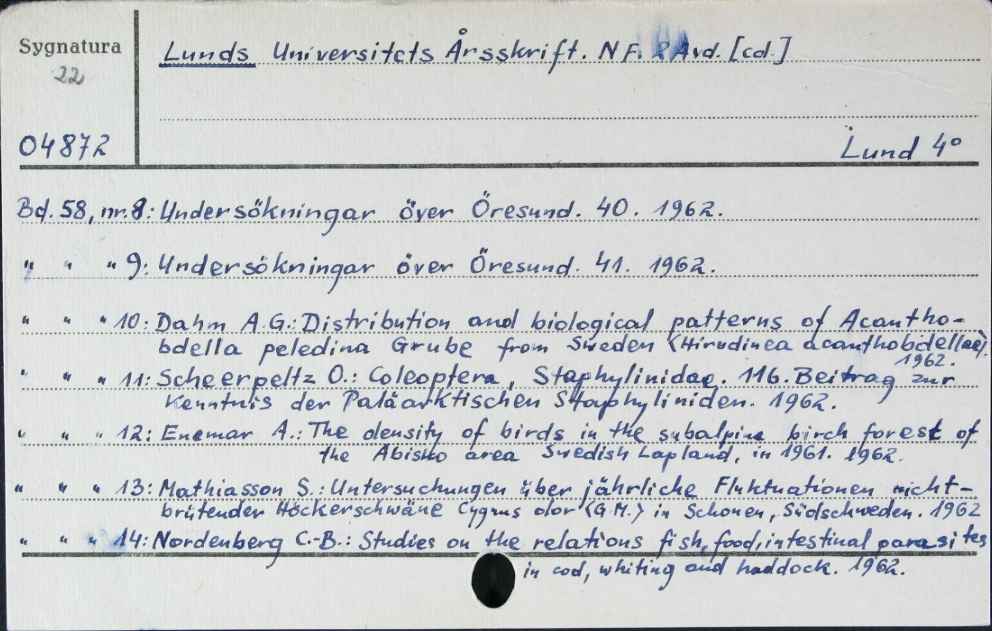 Sygnatura
22
Lunds Universitets Årsskrift. N F. 2 Avd. [cd.]
04872
Lund 4°
Bd. 58, nr. 8: Undersökningar över Öresund. 40. 1962.
" " " 9: Undersökningar över Öresund. 41. 1962.
" " " 10: Dahm A.G.: Distribution and biological patterns of Acantho-
bdella peledina Grube from Sweden (Hirudinea acanthobdellae).
1962.
" " " 11: Scheerpeltz O.: Coleoptera, Staphylinidae. 116. Beitrag zur
Kenntnis der Paläarktischen Staphyliniden. 1962.
" " " 12: Enemar A.: The density of birds in the subalpine birch forest of
the Abisko area Swedish Lapland, in 1961. 1962.
" " " 13: Mathiasson S.: Untersuchungen über jährliche Fluktuationen nicht-
brütender Höckerschwäne Cygnus olor (G M.) in Schonen, Südschweden. 1962
" " " 14: Nordenberg C.-B.: Studies on the relations fish, food, intestinal parasites
in cod, whiting and haddock. 1962.